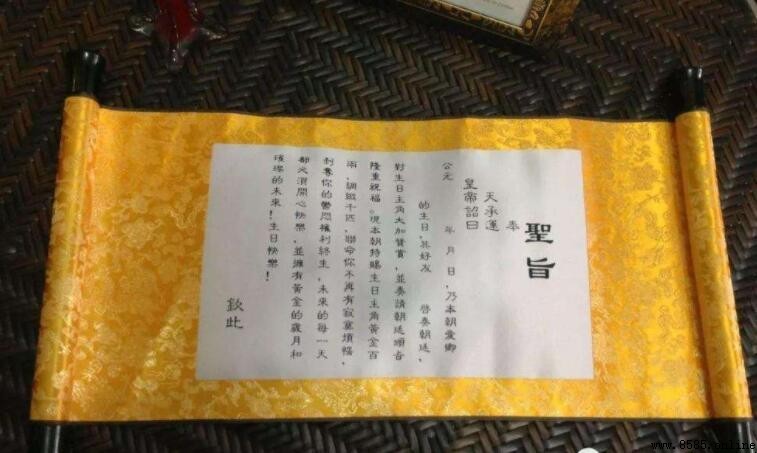 聖旨
奉
天承運
皇帝詔曰
公元 年 月 日，乃本朝愛卿
的生日，其好友 啓奏朝廷，
對生日主角大加贊賞，並奏請朝廷頒旨
隆重祝福。現本朝特賜生日主角黃金百
兩，綢緞千匹，聯命你不再有寂寞煩惱，
剝奪你的鬱悶權利終生，未來的每一天
都必須開心快樂，並擁有黃金的歲月和
璀璨的未來！生日快樂！
欽此